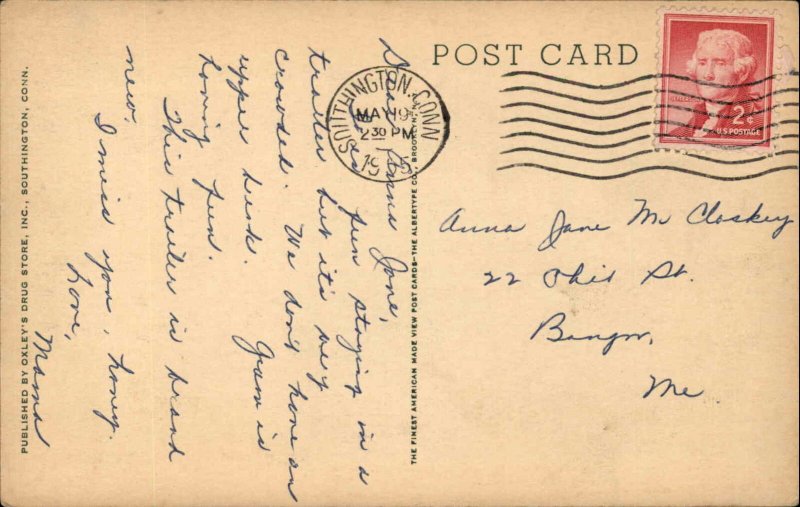 POST CARD
SOUTHINGTON, CONN.
MAY 19
2 30 PM
2¢
U.S. POSTAGE
Dear Anna Jane,
It's fun staying in a
trailer but it's very
crowded. We don't have an
upper desk. Gram is
having fun.
This trailer is brand
new.
I miss you, honey.
Love,
Mama
Anna Jane Mc Closkey
22 Ohio St.
Bangor,
Me
THE FINEST AMERICAN MADE VIEW POST CARDS—THE ALBERTYPE CO., BROOKLYN, N.Y.
PUBLISHED BY OXLEY'S DRUG STORE, INC., SOUTHINGTON, CONN.